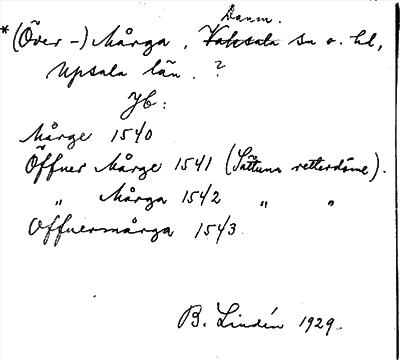 Danm.
*(Över-) Mårga, Vaksala sn o. hd,
Upsala län. ?
Jb:
Mårge 1540
Öffner Mårge 1541 (Sättuna retterdöme).
„ Mårga 1542 „ „
Offnermårga 1543.
B. Lindén 1929.